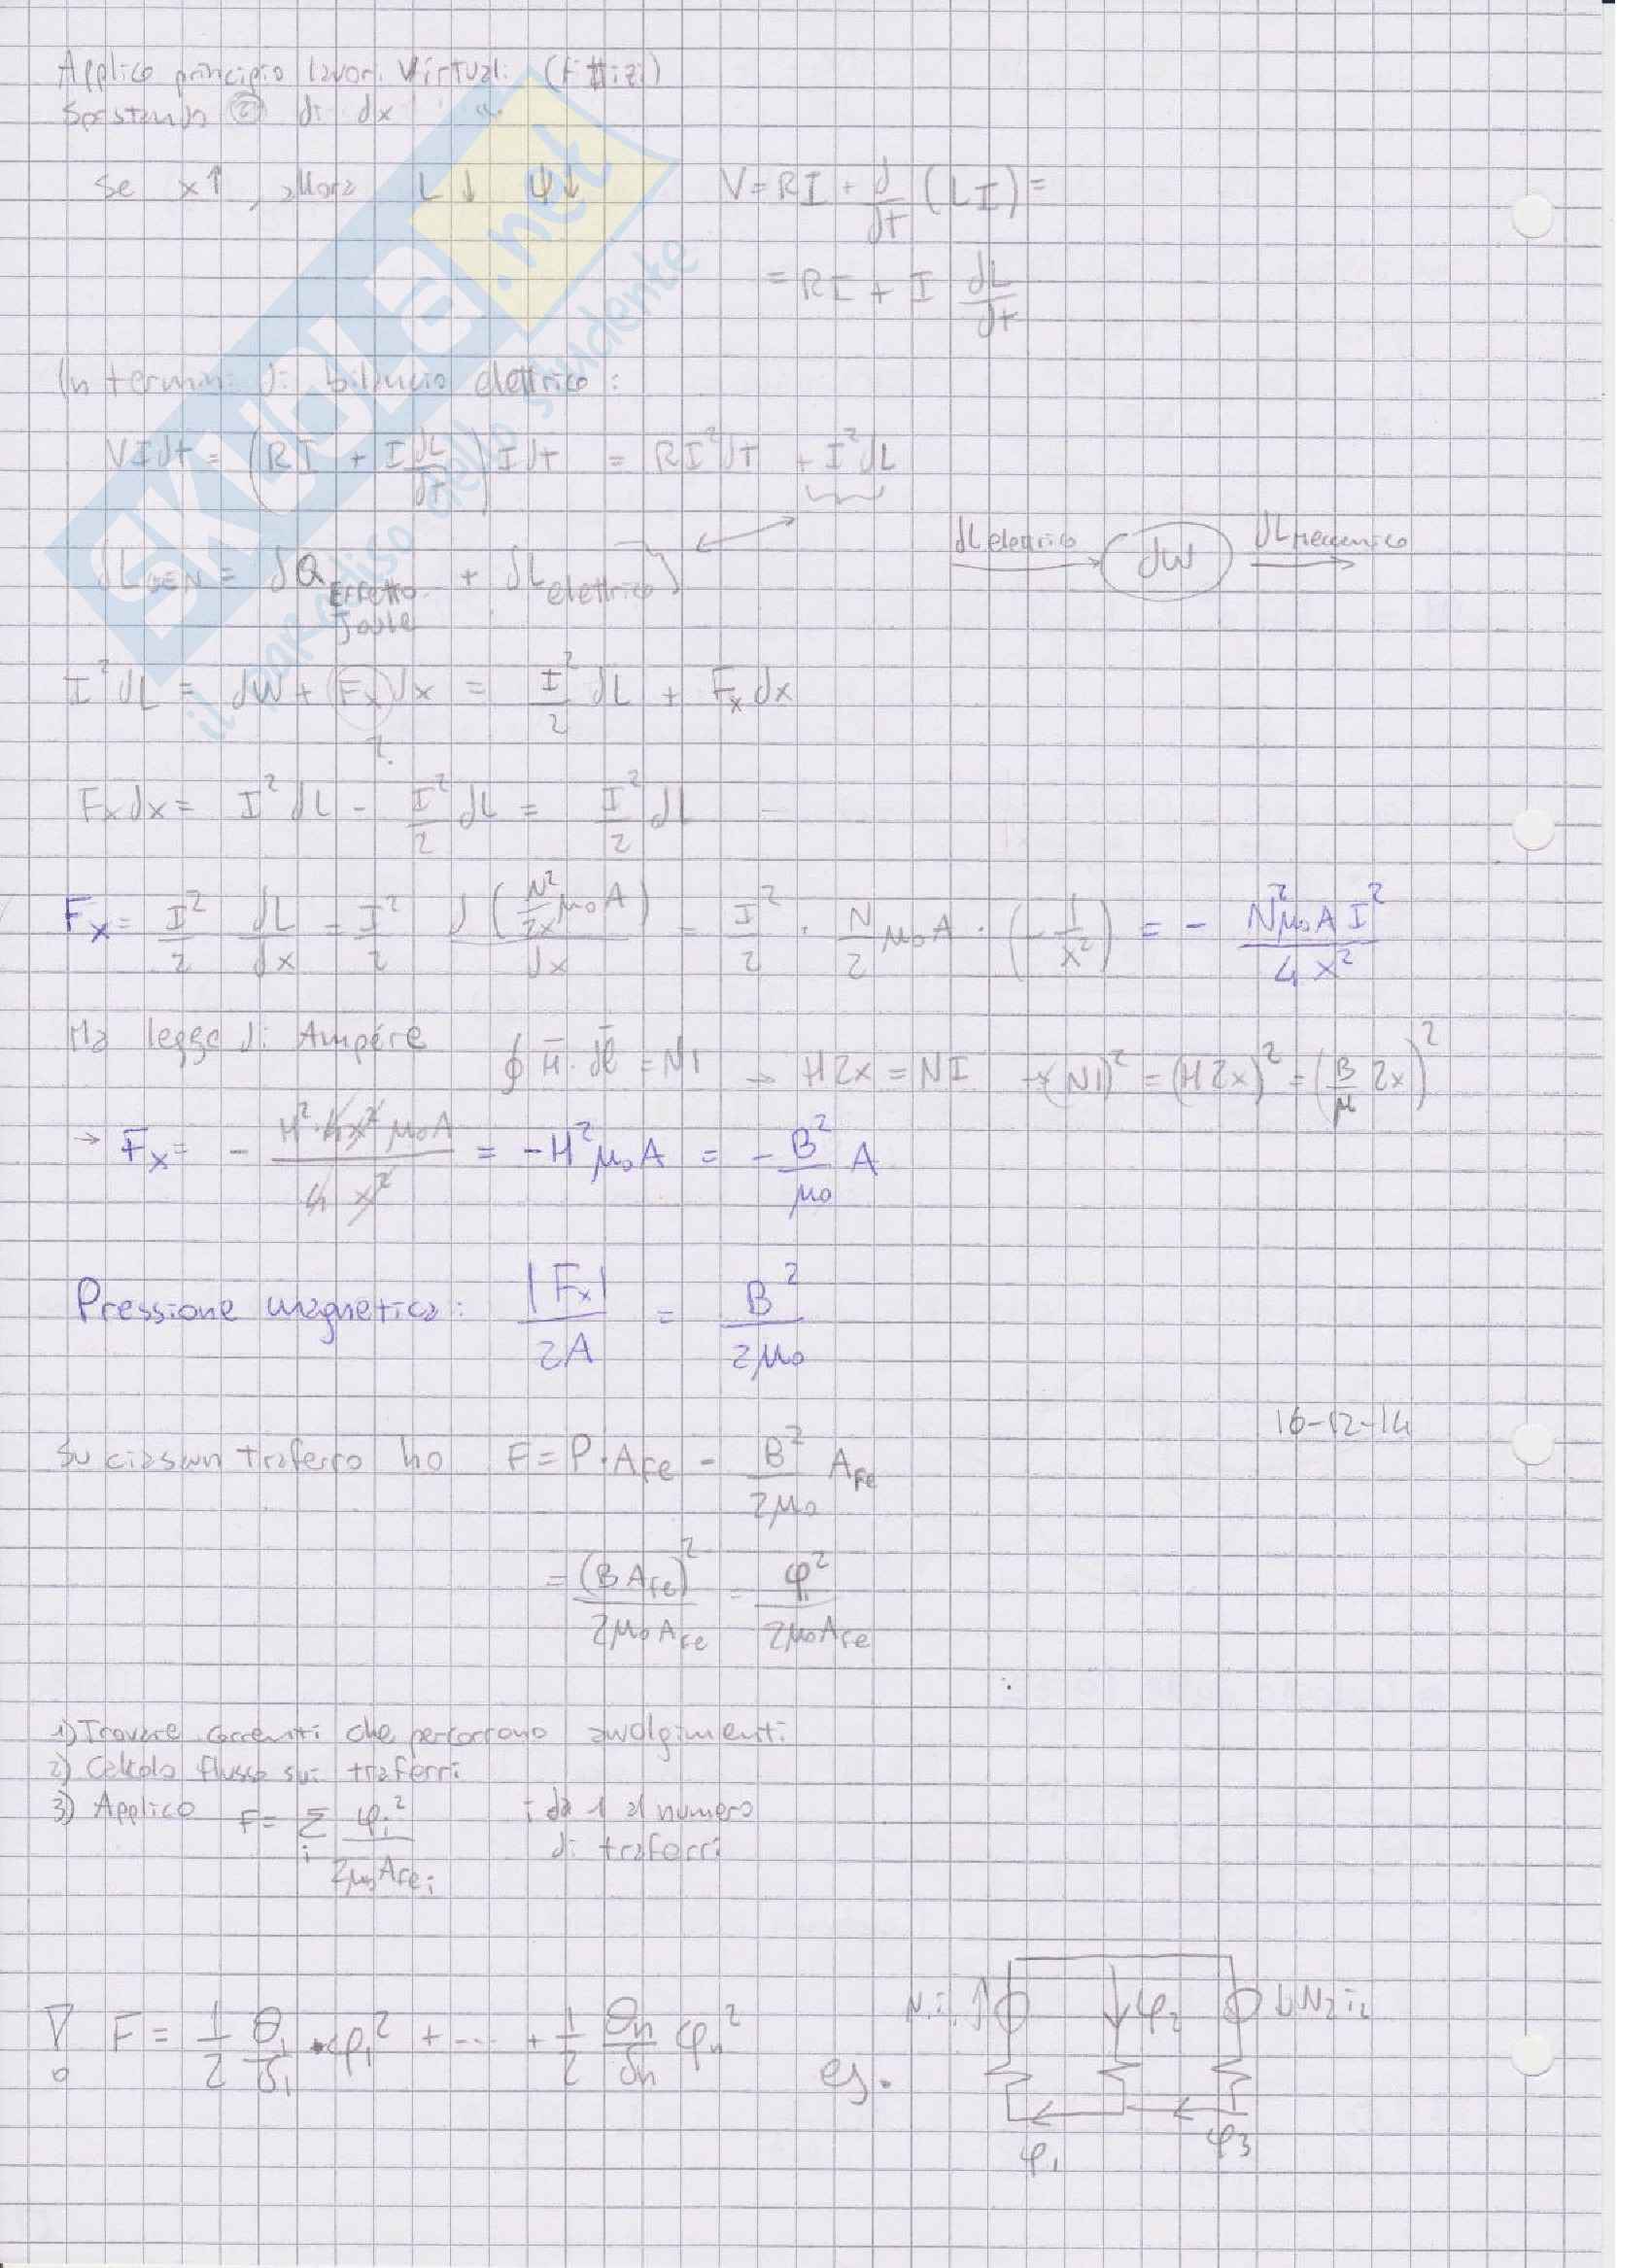 Applico principio lavori Virtuali (Fittizi)
Spostando ② di dx
Se x↑, allora L↓ ψ↓ V = RI + d/dt (LI) =
= RI + I dL/dt
In termini di bilancio elettrico:
VIdt = (RI + I dL/dt) I dt = RI² dt + I² dL
dL GEN = dQ Effetto Joule + dL elettrico
dL elettrico → dW → dL Meccanico
I² dL = dW + Fx dx = I²/2 dL + Fx dx
?
Fx dx = I² dL - I²/2 dL = I²/2 dL
Fx = I²/2 dL/dx = I²/2 d(N²/2x μ0 A)/dx = I²/2 · N/2 μ0 A · (-1/x²) = - N² μ0 A I²/4x²
Ma legge di Ampére ∮ H̄ · dl̄ = NI → H2x = NI → (NI)² = (H2x)² = (B/μ 2x)²
→ Fx = - H²·4x² μ0 A/4x² = -H² μ0 A = - B²/μ0 A
Pressione magnetica: |Fx|/2A = B²/2μ0
16-12-14
Su ciascun traferro ho F = P·AFe - B²/2μ0 AFe
= (B AFe)²/2μ0 AFe = φ²/2μ0 AFe
1) Trovare correnti che percorrono avvolgimenti
2) Calcolo flusso sui traferri
3) Applico F = Σi φi²/2μ0 AFei i da 1 al numero
di traferri
o F = 1/2 θ1/δ1 · φ1² + ... + 1/2 θn/δn φn² es.
N1i1 ↑ ↓ φ2 ↓ N2 i2
φ1 φ3
SKUOLA.net
il paradiso dello studente